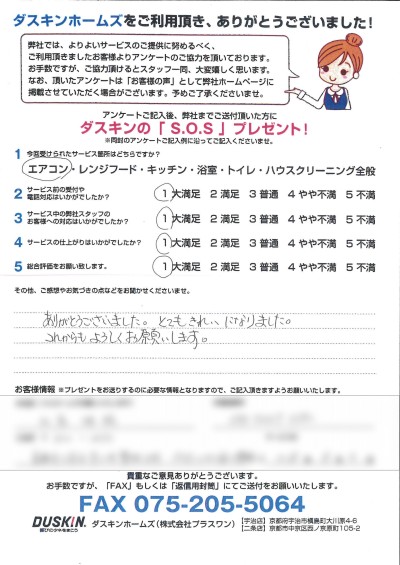 ダスキンホームズをご利用頂き、ありがとうございました!
弊社では、よりよいサービスのご提供に努めるべく、
ご利用頂きましたお客様よりアンケートのご協力を頂いております。
お手数ですが、ご協力頂けるとスタッフ一同、大変嬉しく思います。
なお、頂いたアンケートは「お客様の声」として弊社ホームページに
掲載させていただく場合がございます。予めご了承くださいませ。
アンケートご記入後、弊社までご送付頂いた方に
ダスキンの「 S.O.S 」プレゼント!
※同封のアンケートご記入例に沿ってご記入くださいませ。
1 今回受けられたサービス箇所はどちらですか?
エアコン・レンジフード・キッチン・浴室・トイレ・ハウスクリーニング全般
2 サービス前の受付や
電話対応はいかがでしたか?
1 大満足 2 満足 3 普通 4 やや不満 5 不満
3 サービス中の弊社スタッフの
お客様への対応はいかがでしたか?
1 大満足 2 満足 3 普通 4 やや不満 5 不満
4 サービスの仕上がりはいかがでしたか?
1 大満足 2 満足 3 普通 4 やや不満 5 不満
5 総合評価をお願い致します。
1 大満足 2 満足 3 普通 4 やや不満 5 不満
その他、ご感想やお気づきの点などをお聞かせくださいませ。
ありがとうございました。とてもきれいになりました。
これからもよろしくお願いします。
お客様情報 ※プレゼントをお送りするのに必要な情報となりますので、ご記入頂きますようお願いいたします。
貴重なご意見ありがとうございます。
お手数ですが、「FAX」もしくは「返信用封筒」にてご送付をお願いいたします。
FAX 075-205-5064
DUSKIN
喜びのタネをまこう
ダスキンホームズ(株式会社プラスワン)
【宇治店】京都府宇治市槇島町大川原4-6
【二条店】京都市中京区西ノ京原町105-2